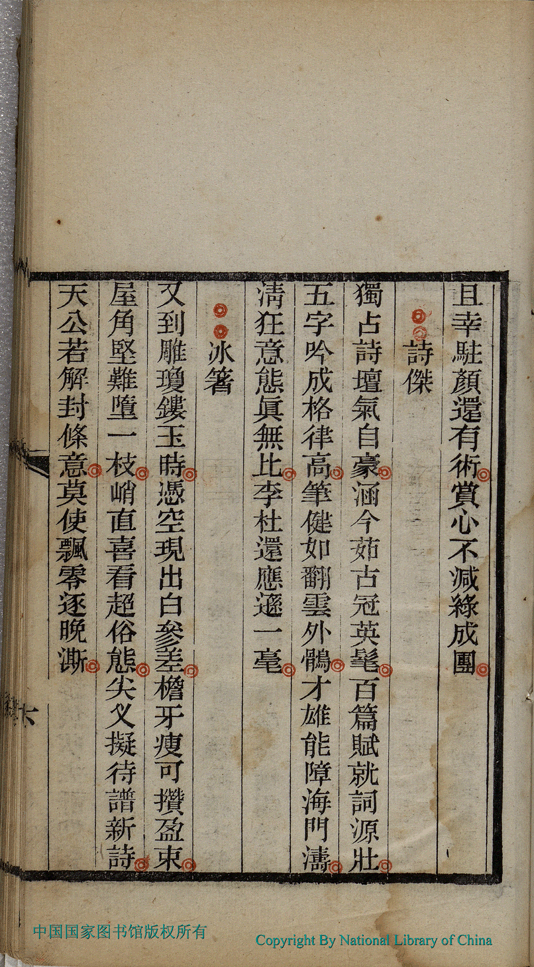 且幸駐顏還有術賞心不減綠成團
詩傑
獨占詩壇氣自豪涵今茹古冠英髦百篇賦就詞源壯
五字吟成格律高筆健如翻雲外鶻才雄能障海門濤
清狂意態眞無比李杜還應遜一毫
冰箸
又到雕瓊鏤玉時憑空現出白參差檐牙瘦可攢盈束
屋角堅難墮一枝峭直喜看超俗態尖叉擬待譜新詩
天公若解封條意莫使飄零逐晚澌
六
中国国家图书馆版权所有
Copyright By National Library of China